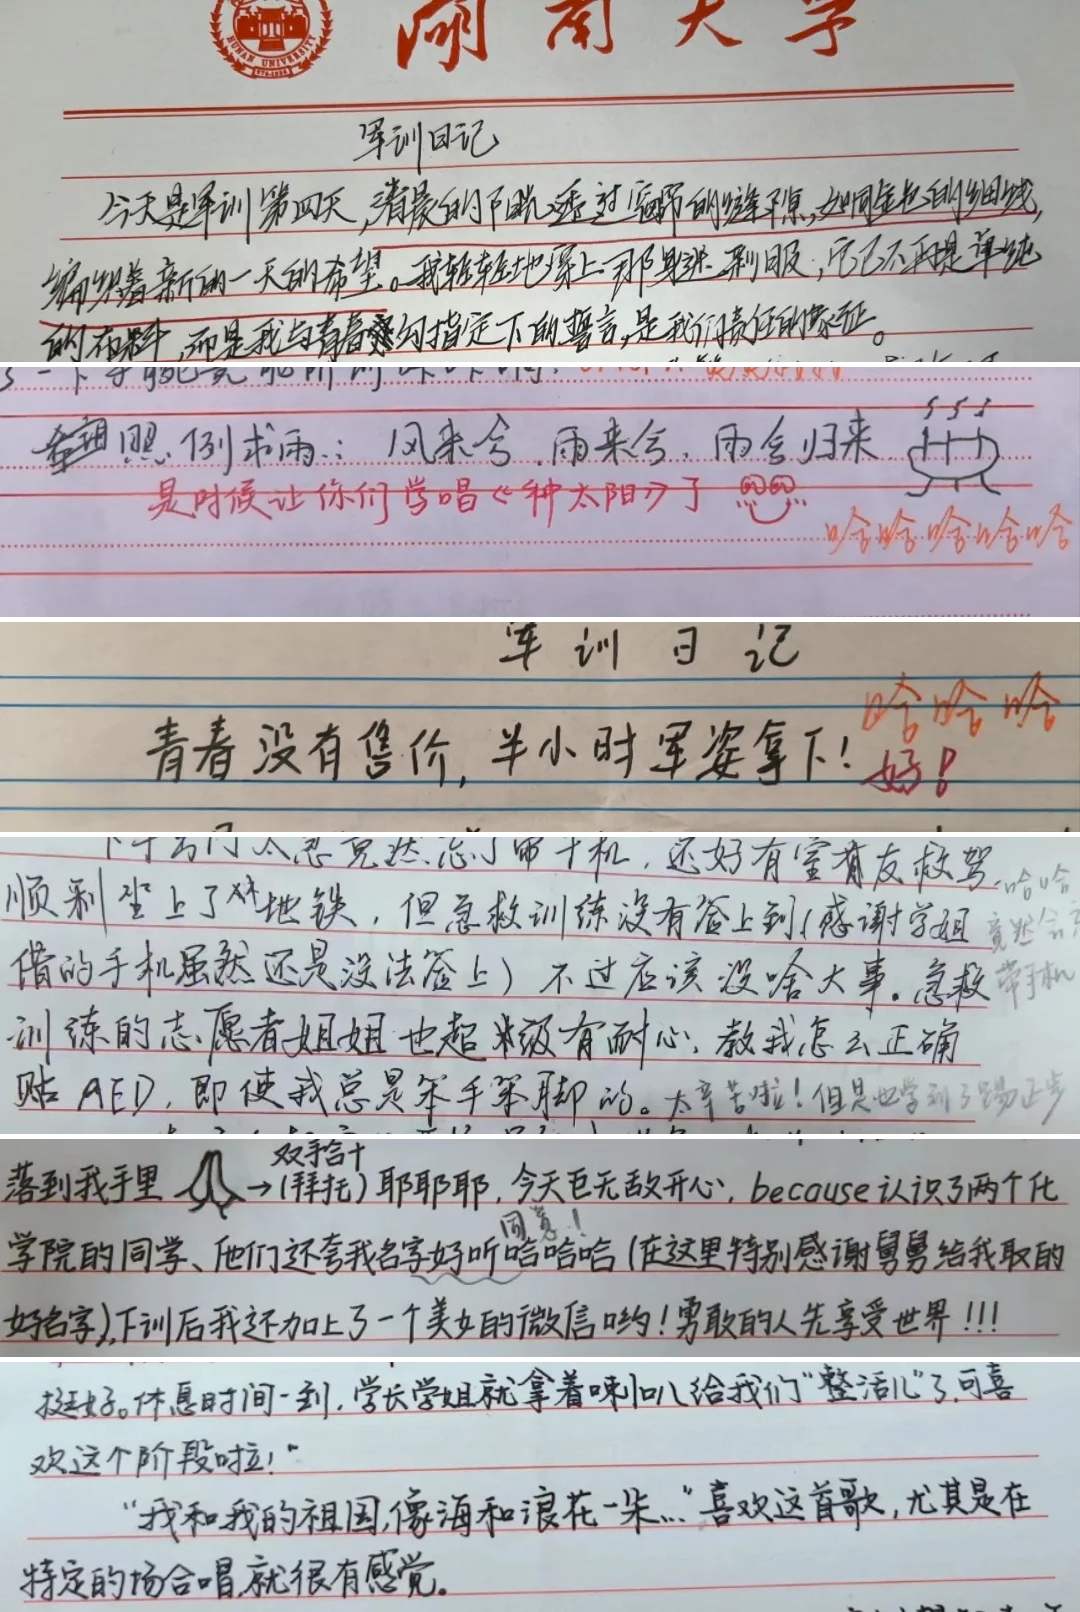 湖南大学
HUNAN UNIVERSITY
军训日记
今天是军训第四天,清晨的阳光透过窗帘的缝隙,如同金色的细线,
编织着新的一天的希望。我轻轻地穿上那身迷彩服,它已不再是单纯
的布料,而是我与青春勾指定下的誓言,是我们责任的象征。
照例求雨:风来兮,雨来兮,雨兮归来
是时候让你们学唱《种太阳》了
哈哈哈哈哈
军训日记
哈哈哈
青春没有售价,半小时军姿拿下!
好!
忘了带手机,还好有室友救驾,
顺利坐上了地铁,但急救训练没有签上到(感谢学姐
哈哈
竟然会忘
带手机
借的手机虽然还是没法签上)不过应该没啥大事。急救
训练的志愿者姐姐也超级有耐心,教我怎么正确
贴AED,即使我总是笨手笨脚的。太辛苦啦!但是也学到了踢正步
双手合十
落到我手里→(拜托)耶耶耶,今天巨无敌开心,because认识了两个化
同意!
学院的同学、他们还夸我名字好听哈哈哈(在这里特别感谢舅舅给我取的
好名字),下训后我还加上了一个美女的微信哟!勇敢的人先享受世界!!!
挺好。休息时间一到,学长学姐就拿着喇叭给我们“整活儿”了,可喜
欢这个阶段啦!”
“我和我的祖国,像海和浪花一朵...”喜欢这首歌,尤其是在
特定的场合唱,就很有感觉。